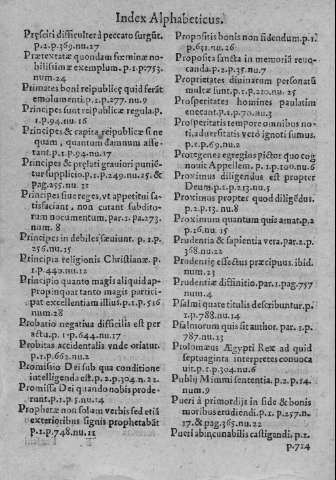 Index Alphabeticus.
Pręfecti difficulter à peccato surgūt.
p.2.p.369.nu.27
Prætextatæ quondam fœminæ no-
bilissimæ exemplum. p.1.p.753.
num.24
Primates boni reipublicę quid ferāt
emolumenti.p.1.p.277.nu.9
Principes sunt reipublicæ regula.p.
1.p.94.nu.16
Principes & capita reipublicæ si ne
quam, quantum damnum asse-
rant.p.1.p.94.nu.17
Principes & pręlati grauiori puniē-
tur supplicio.p.1.p.249.nu.25.&
pag.255.nu.21
Principes siue reges, vt appetitui sa-
tisfaciant, non curant subdito-
rum nocumentum.par.1.pa.273.
num. 8
Principes in debiles sæuiunt. p.1.p.
256.nu.15
Principia religionis Christianæ. p.
1.p.440.nu.12
Principio quanto magis aliquid ap-
propinquat tanto magis partici-
pat excellentiam illius.p.1.p.516
num.28
Probatio negatiua difficilis est per
actū.p.1.p.644.nu.17
Probitas accidentalis vnde oriatur.
p.1.p.662.nu.2
Promissio Dei sub qua conditione
intelligenda est.p.2.p.304.n.22.
Promissa Dei quando nobis prode-
runt.p.1.p.5.nu.14
Prophetæ non solum verbis sed etiā
exterioribus signis prophetabāt
p.1.p.748.nu.11
Propositis bonis non fidendum.p.1
p.631.nu.26
Proposita sancta in memoriā reuo-
canda.p.2.p.35.nu.7
Proprietates diuinatum personatū
multæ sunt.p.1.p.210.nu.25
Prosperitates homines paulatim
enecant.p.1.p.70.nu.3
Prosperitatis tempore omnibus no-
ti,aduersitatis verò ignoti sumus.
p.1.p.69.nu.2
Protogenes egregius pictor quo cog
nouit Appellem. p.1.p.100.nu.6
Proximus diligendus est propter
Deum.p.1.p.213.nu.5
Proximus propter quod diligēdus.
p.2.p.13.nu.8
Proximum quantum quis amat.p.2
p.16.nu.15
Prudentia & sapientia vera.par.2.p.
368.nu.22
Prudentię effectus præcipuus. ibid.
num.23
Prudentiæ diffinitio.par.1.pag.757
num.4
Psalmi quare titulis describuntur.p.
1.p.788.nu.14
Psalmorum quis sit author.par.1.p.
787.nu.11
Ptolomæus Ægypti Rex ad quid
septuaginta interpretes conuoca
uit.p.1.p.304.nu.6
Publij Mimmi sententia. p.2.p.14.
num.9
Pueri à primordijs in fide & bonis
moribus erudiendi.p.1.p.257.n.
17.& pag.365.nu.22
Pueri ab incunabilis castigandi. p.1.
p.724